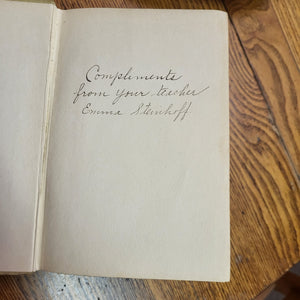 Compliments
from your teacher
Emma Steinhoff